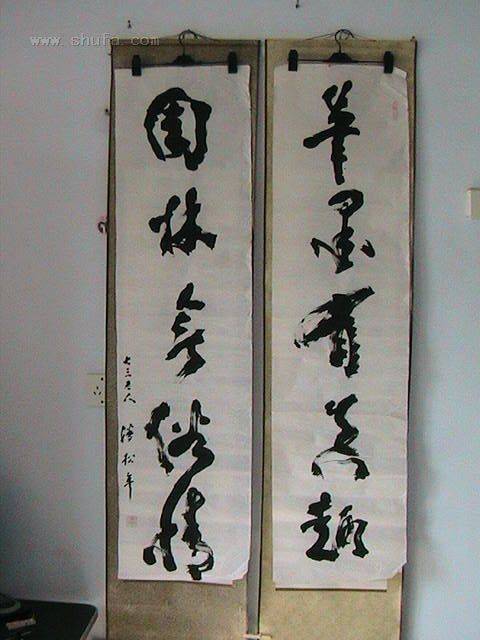 www.shufa.com
筆墨有真趣
園林無俗情
七三老人
松年